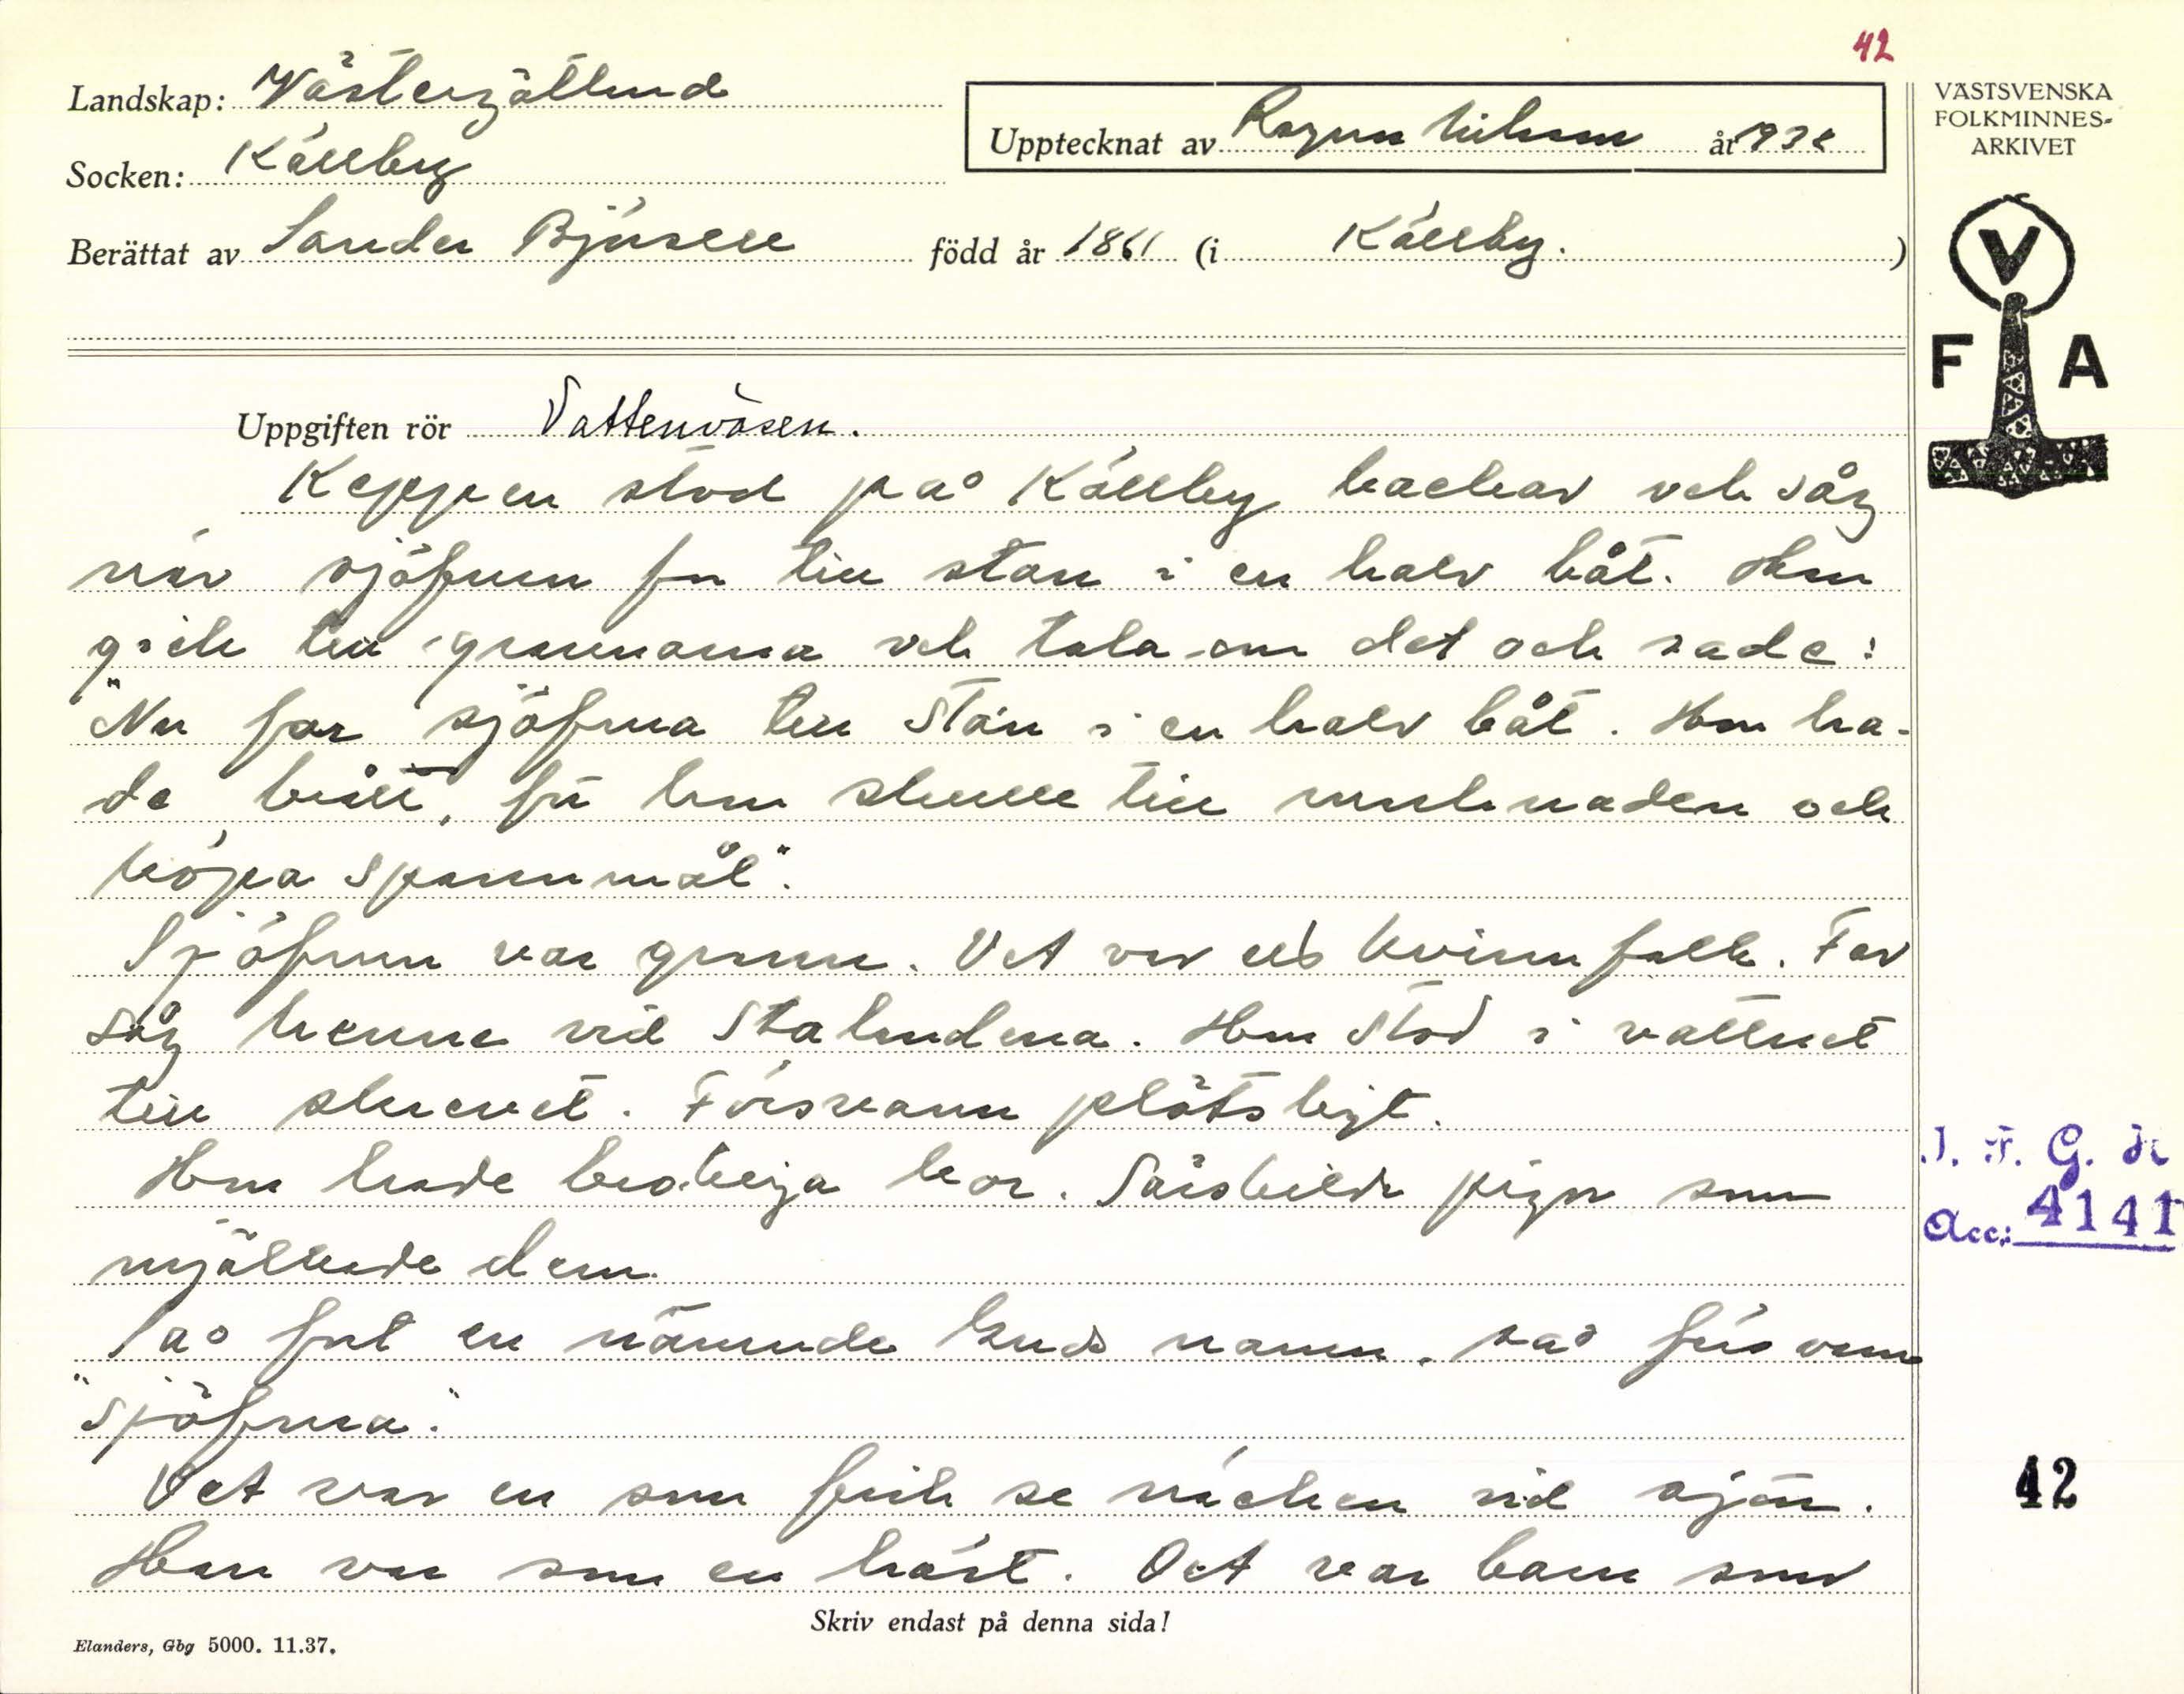 42
Landskap: Västergötland
Upptecknat av Ragnar Nilsson år 1938
VÄSTSVENSKA
FOLKMINNES-
ARKIVET
Socken: Källby
Berättat av Sander Björsell född år 1861 (i Källby.)
V
F A
Uppgiften rör Vattenväsen.
Keppen stod på Källby backar och såg
när sjöfrun for till stan i en halv båt. Han
gick till grannarna och tala om det och sade:
"Nu far sjöfrua till stan i en halv båt. Hon ha-
de brått, för hon skulle till marknaden och
köpa spannmål".
Sjöfrun var grann. Det var ett kvinnfolk. Far
såg henne vid Stalundena. Hon stod i vattnet
till skrevet. Försvann plötsligt.
Hon hade brokiga kor. Särskilda pigor som
mjölkade dem.
Så fort en nämnde Guds namn, så försvann
"sjöfrua".
Det var en som fick se näcken vid sjön.
Han var som en häst. Det var barn som
I. F. G. H.
Acc.: 4141
42
Skriv endast på denna sida!
Elanders, Gbg 5000. 11.37.